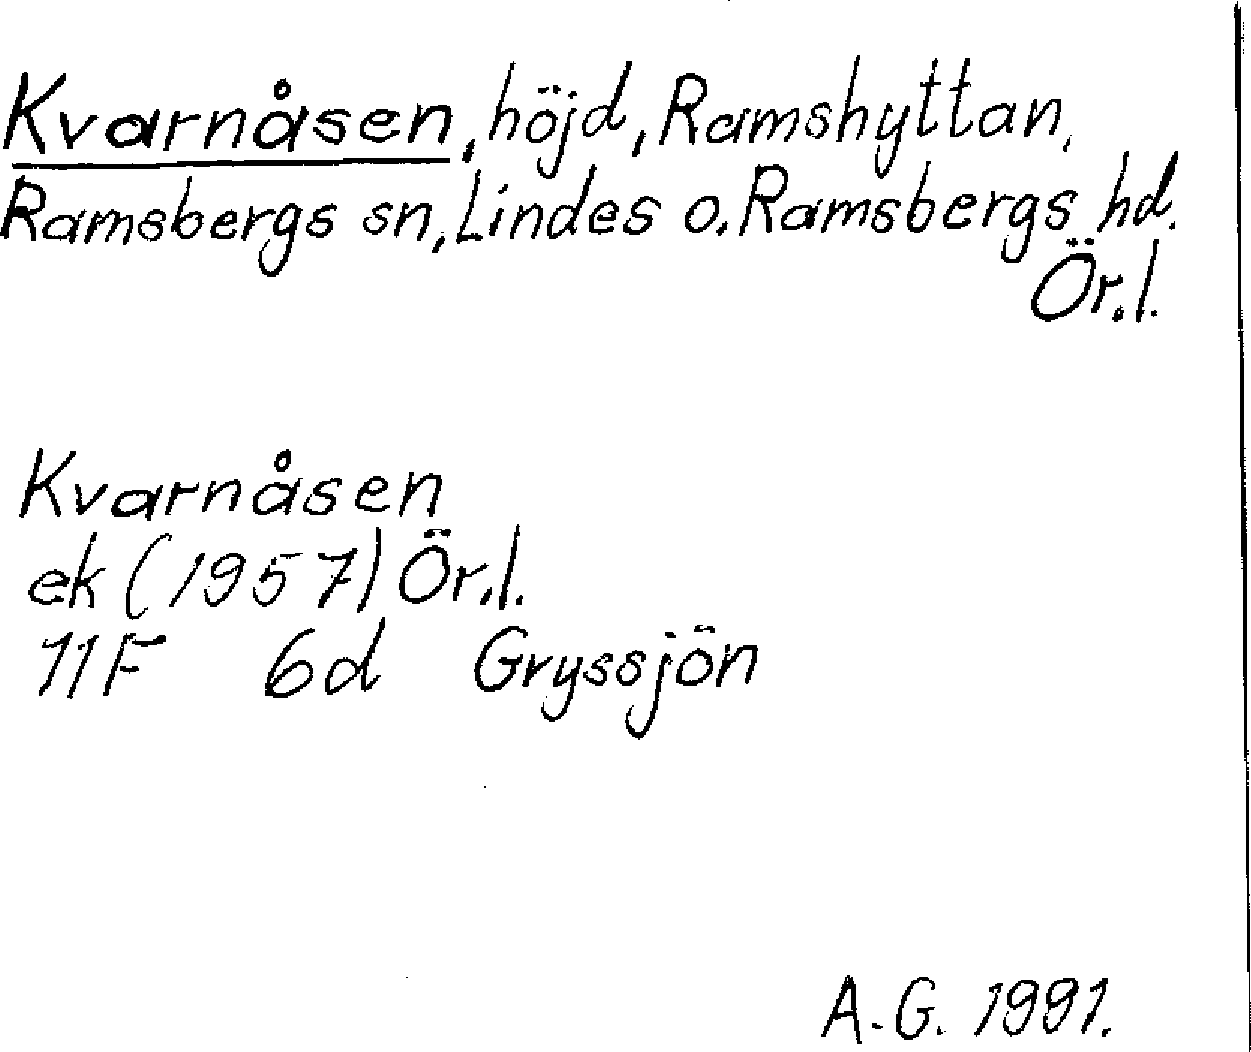 Kvarnåsen, höjd, Ramshyttan,
Ramsbergs sn, Lindes o. Ramsbergs hd.
Ör.l.
Kvarnåsen
ek (1957) Ör.l.
11F 6d Gryssjön
A.G. 1991.